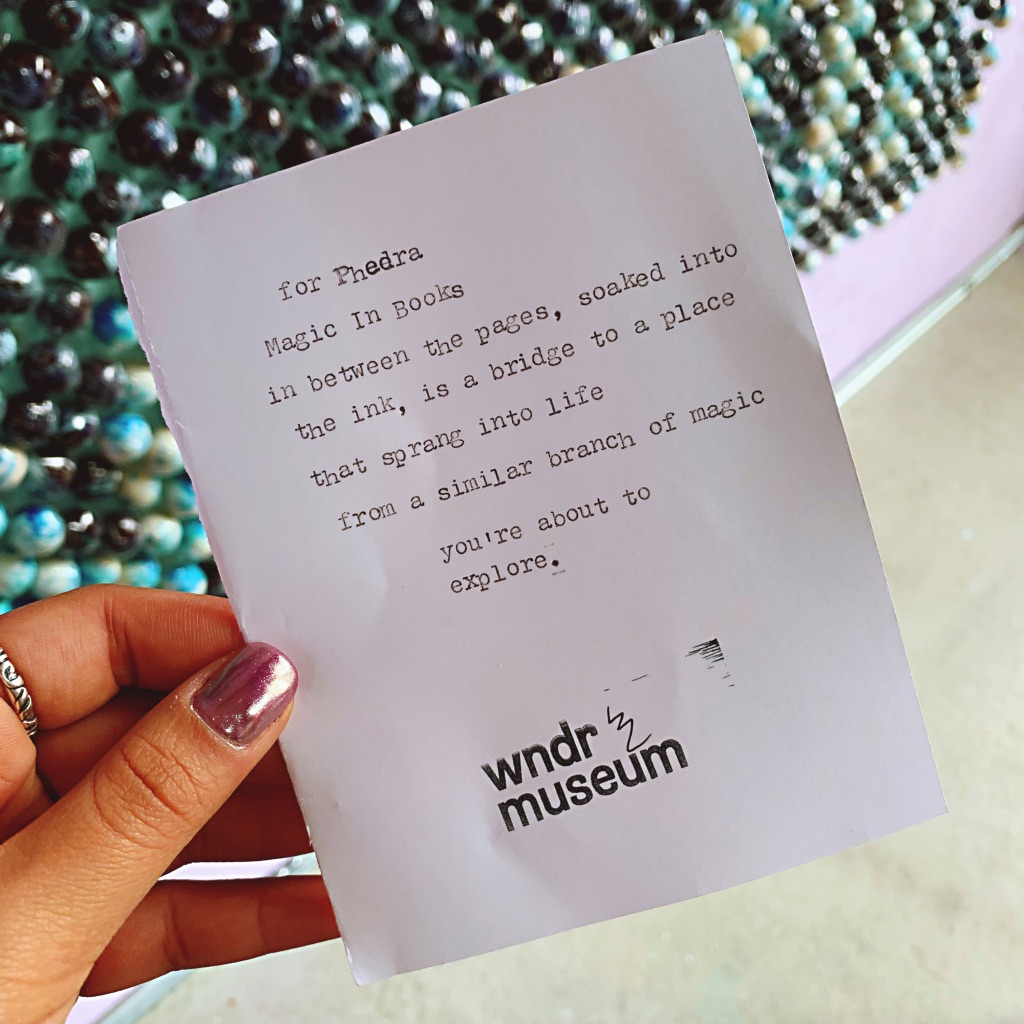 for Phedra
Magic In Books
in between the pages, soaked into
the ink, is a bridge to a place
that sprang into life
from a similar branch of magic
you're about to
explore.
wndr
museum